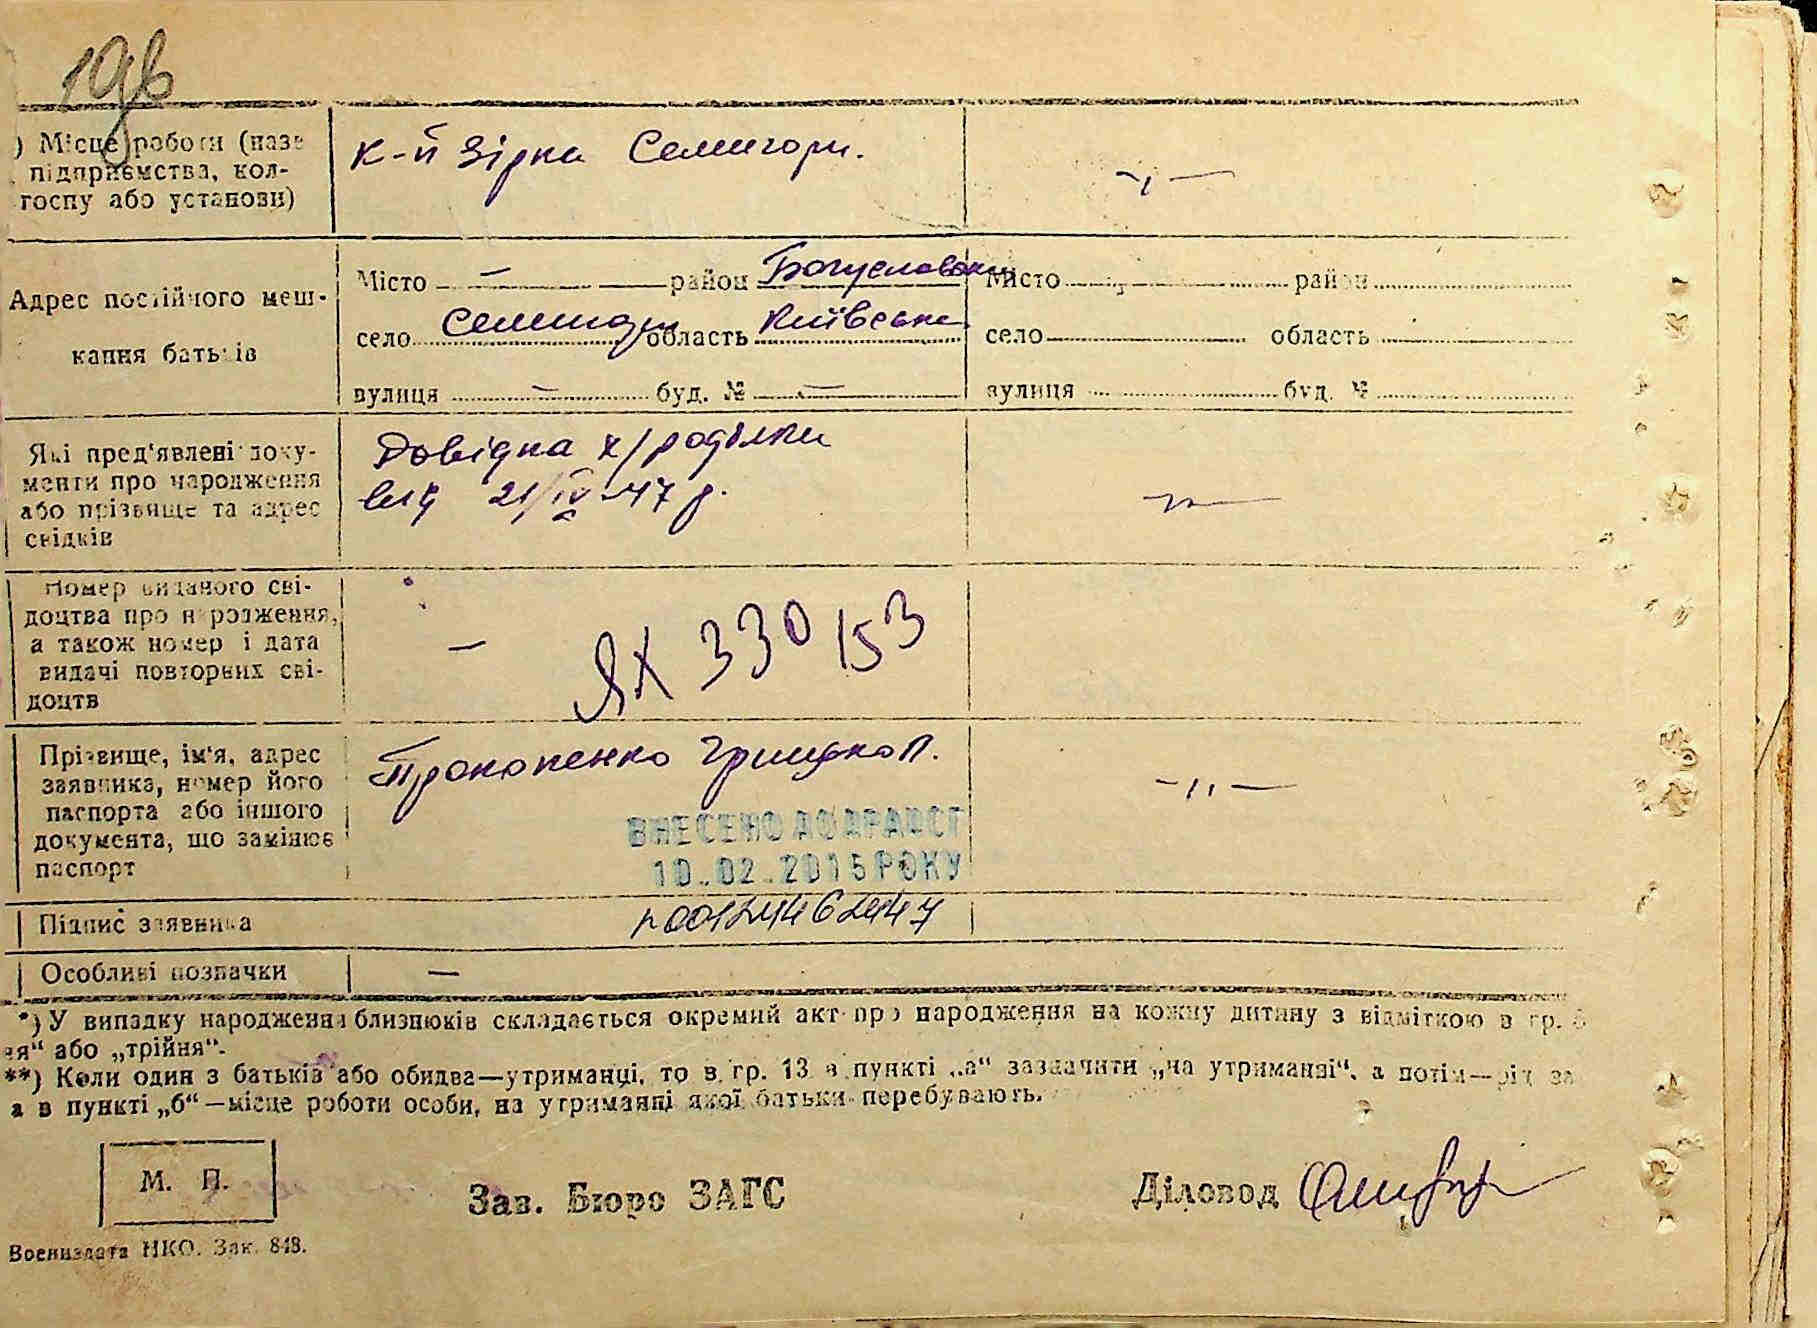 19б
) Місце роботи (назв
підприємства, кол-
госпу або установи)
к-п Зірка Семигори.
Адрес постійного меш-
кання батьків
Місто — район Богуславськ
село Семигори область Київська
вулиця — буд. № —
Місто район
село область
вулиця буд. №
Які пред'явлені доку-
менти про народження
або прізвище та адрес
свідків
Довідка
від 21/IV-47 р.
Номер виданого сві-
доцтва про народження,
а також номер і дата
видачі повторних сві-
доцтв
— ЯХ 330153
Прізвище, ім'я, адрес
заявника, номер його
паспорта або іншого
документа, що замінює
паспорт
Прокопенко Грицько П.
— ,, —
ВНЕСЕНО ДО ДРАЦСГ
10.02.2015 РОКУ
Підпис заявника
Особливі позначки
—
*) У випадку народження близнюків складається окремий акт про народження на кожну дитину з відміткою в гр.
ня“ або „трійня“.
**) Коли один з батьків або обидва—утриманці, то в гр. 13 в пункті „а“ зазначити „на утриманні“, а потім—рід за
а в пункті „б“—місце роботи особи, на утриманні якої батьки перебувають.
М. П.
Зав. Бюро ЗАГС
Діловод
Воениздата НКО. Зак. 848.